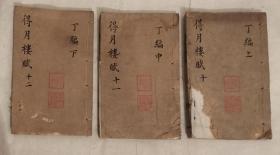 丁編上
得月樓賦 十
丁編中
得月樓賦 十一
丁編下
得月樓賦 十二